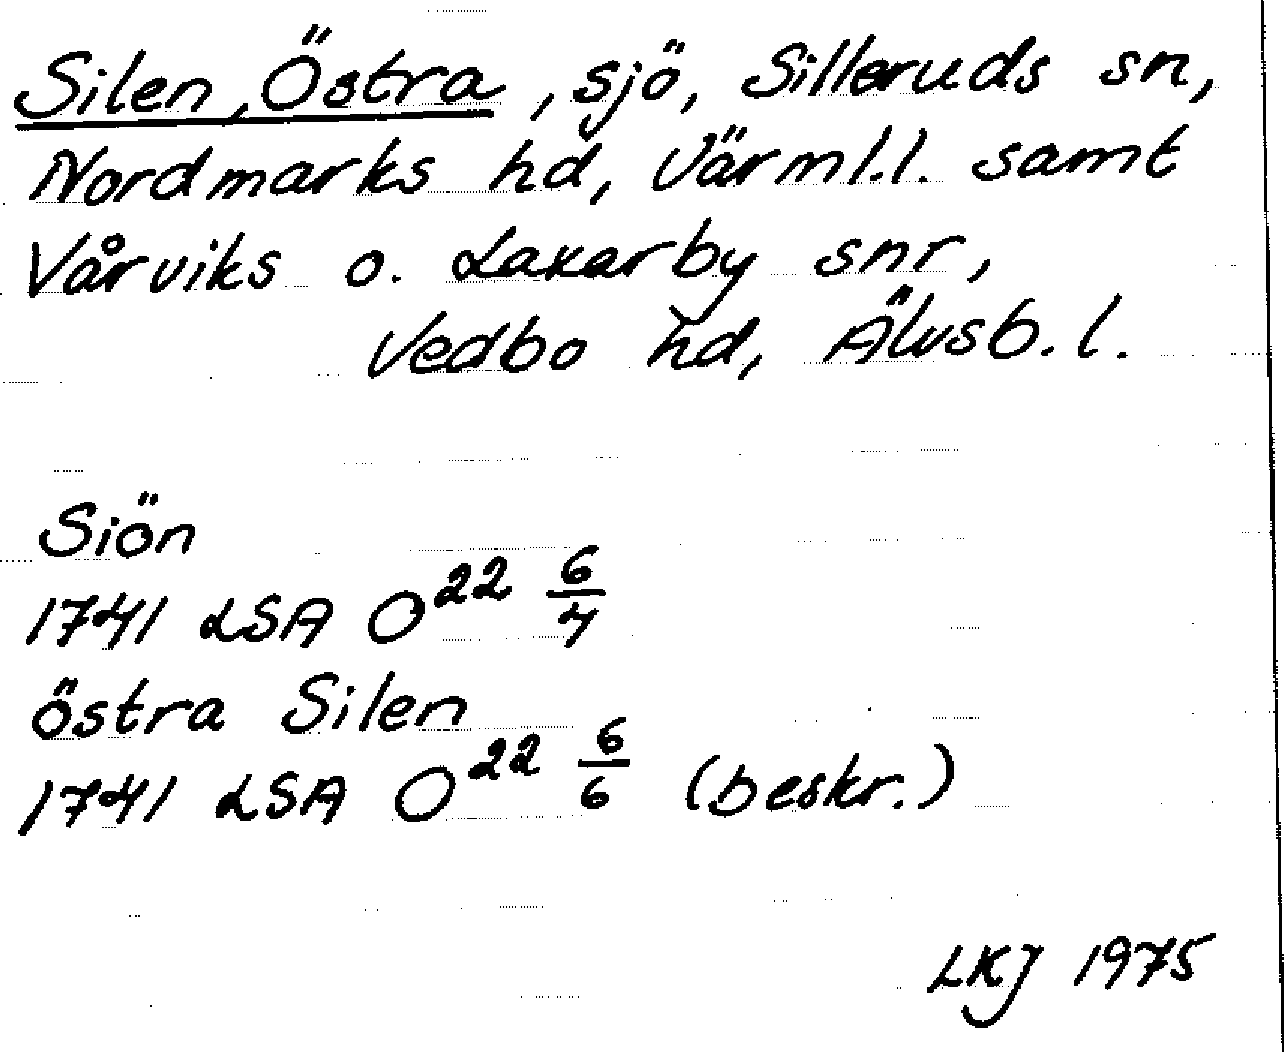 Silen, Östra, sjö, Silleruds sn,
Nordmarks hd, Värml.l. samt
Vårviks o. Laxarby snr,
Vedbo hd, Älvsb.l.
Siön
1741 LSA O²² 6/4
östra Silen
1741 LSA O²² 6/6 (beskr.)
LKJ 1975